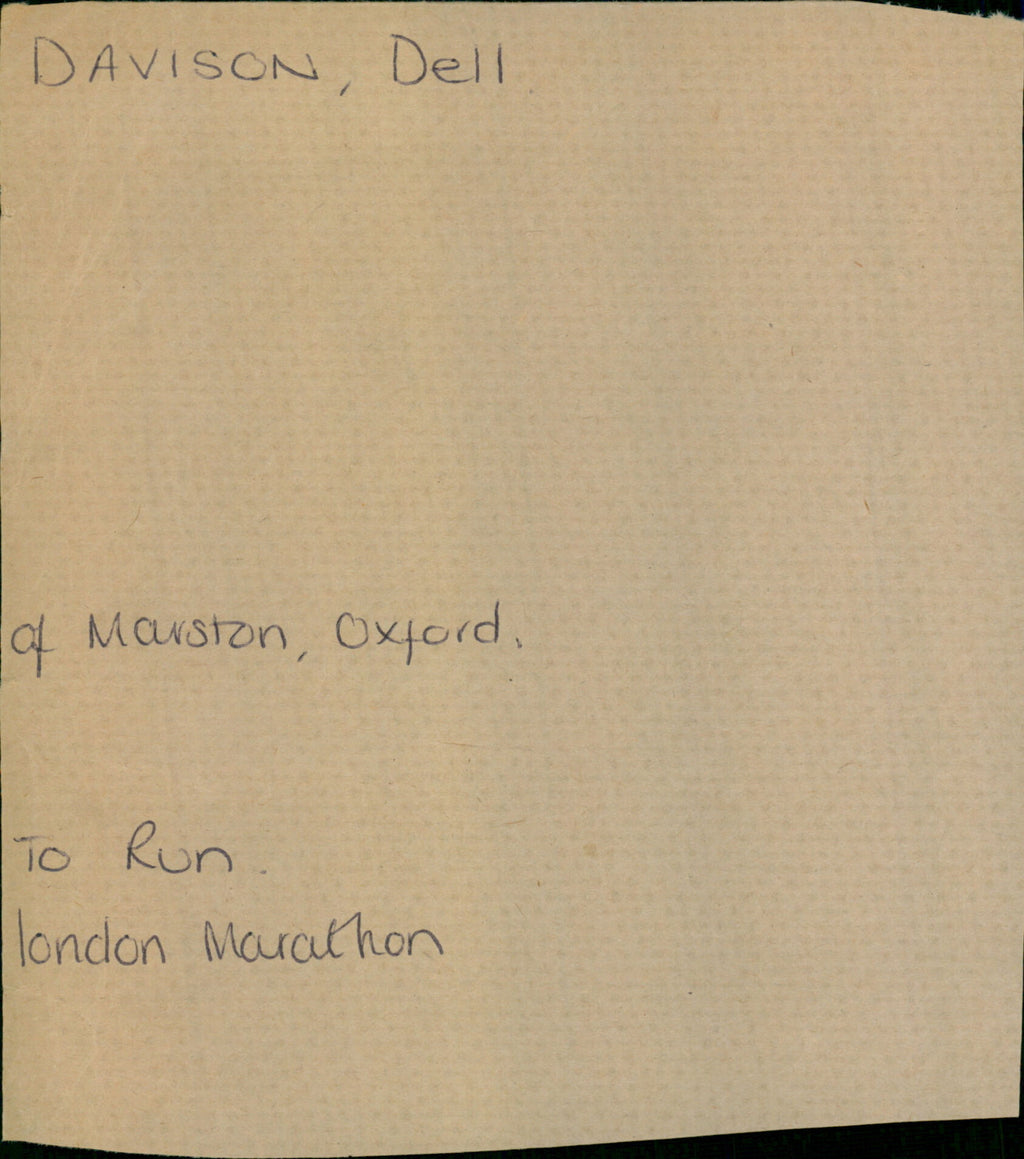 DAVISON, Dell
of Marston, Oxford.
To Run.
london Marathon